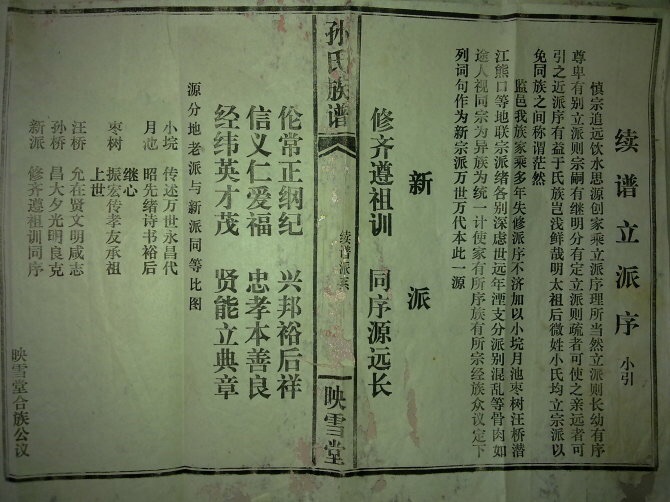 续谱立派序 小引
慎宗追远饮水思源创家乘立派序理所当然立派则长幼有序
尊卑有别立派则宗嗣有继明分有定立派则疏者可使之亲远者可
引之近派序有益于氏族岂浅鲜哉明太祖后微姓小氏均立宗派以
免同族之间称谓茫然
监邑我族家乘多年失修派序不济加以小垸月池枣树汪桥潜
江熊口等地联宗派绪各别深虑世远年湮支分派别混乱等骨肉如
途人视同宗为异族为统一计使家有所序族有所宗经族众议定下
列词句作为新宗派万世万代本此一源
新派
修齐遵祖训 同序源远长
孙氏族谱
续谱派系
映雪堂
伦常正纲纪 兴邦裕后祥
信义仁爱福 忠孝本善良
经纬英才茂 贤能立典章
源分地老派与新派同等比图
小垸 传述万世永昌代
月池 昭先绪诗书裕后
继心
枣树 振宏传孝友承祖
上世
汪桥 允在贤文明咸志
孙桥 昌大夕光明良克
新派 修齐遵祖训同序
映雪堂合族公议